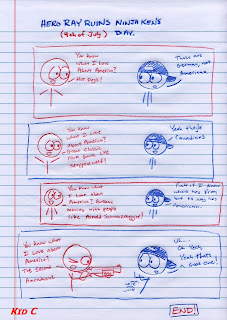 HERO RAY RUINS NINJA KEN'S
(4th of July) DAY.
You know
what I love
About America?
Hot Dogs!
Those are
German, not
American.
You know
what I love
About America?
Great Classic
rock bands like
Steppenwolf!
Yeah they're
Canadians
You know what
I love about
America? Fantasy
Movies with people
like Arnold Schwarzenegger!
Far as I know
no way was
American.
You know what
I love about
America?
The Second
Amendment
Uh...
Oh Yeah,
Yeah thats
a Good one!
KID C
END!